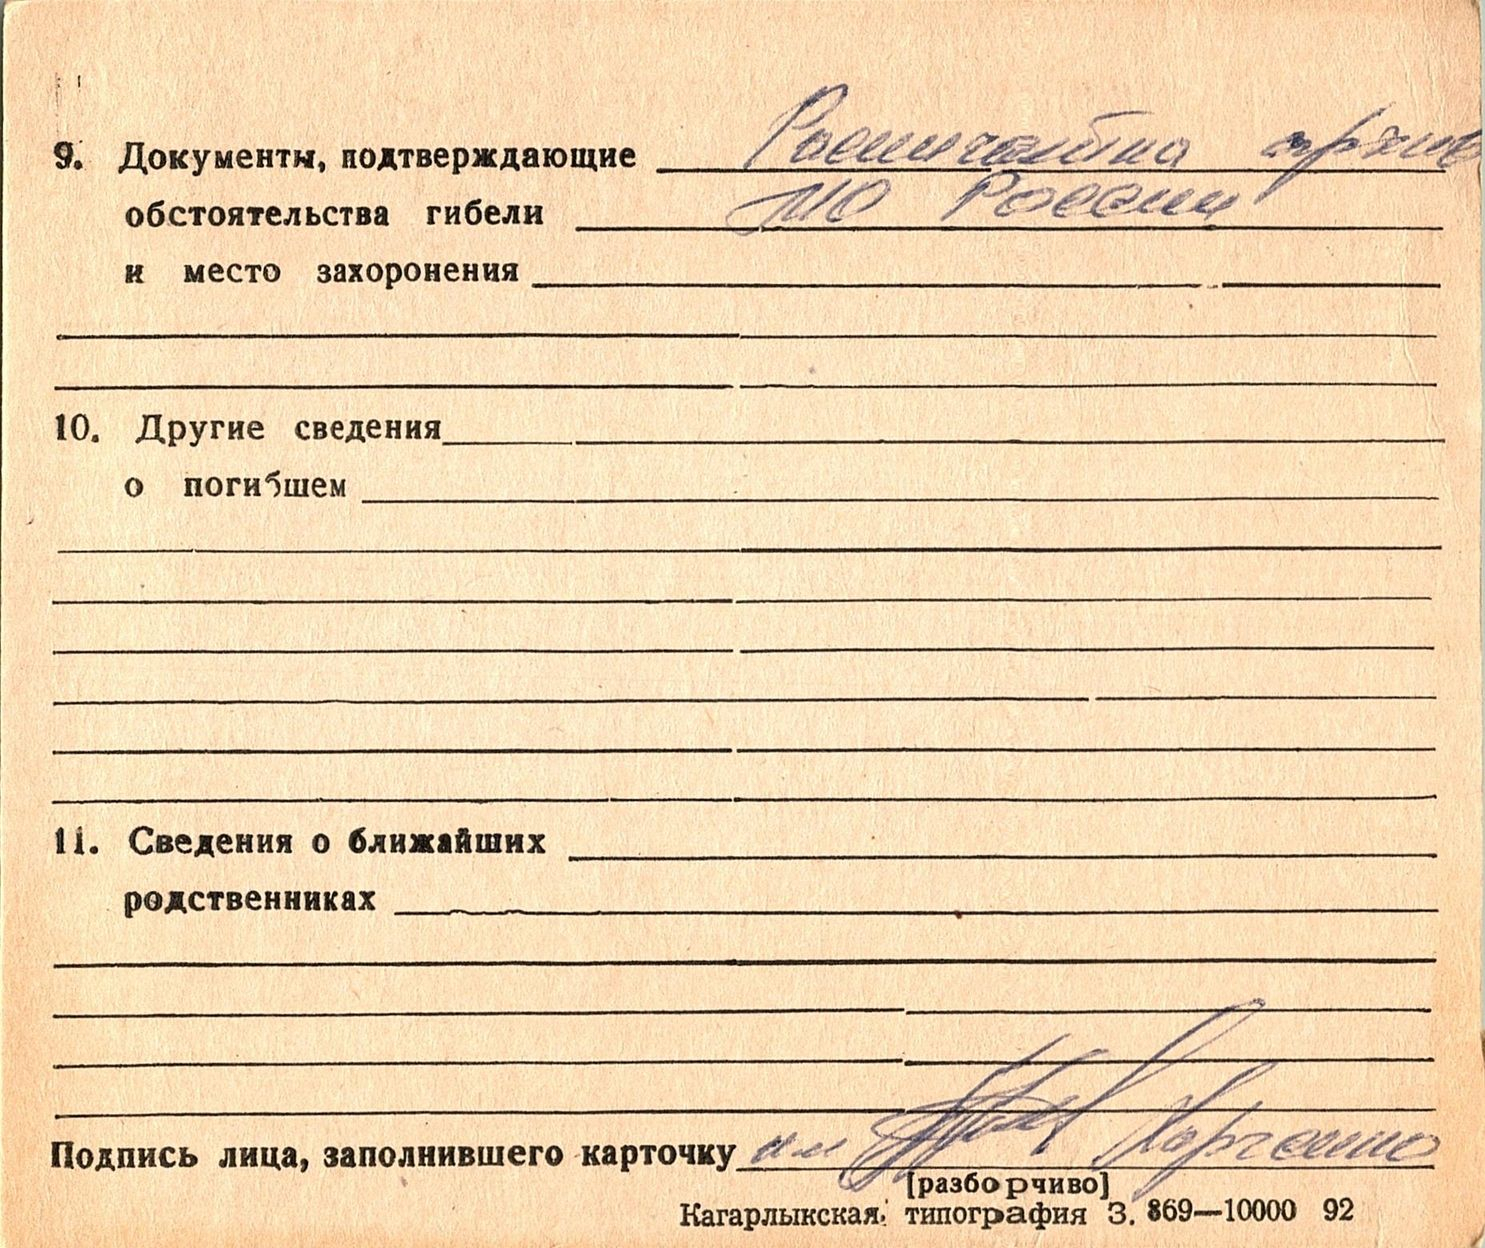 9. Документы, подтверждающие Распечатка архив
обстоятельства гибели МО России
и место захоронения
10. Другие сведения
о погибшем
11. Сведения о ближайших
родственниках
Подпись лица, заполнившего карточку
[разборчиво]
Кагарлыкская типография З. 869—10000 92